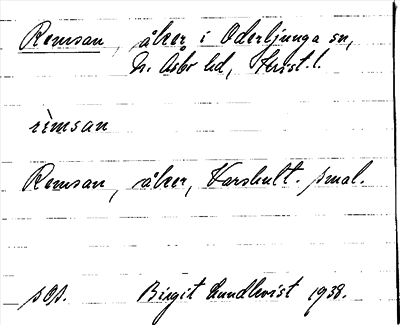 Remsan, åker i Oderljunga sn,
N. Åsbo hd, Krist. l.
rìmsan
Remsan, åker, Karshult. smal.
sOp. Birgit Lundkvist 1938.